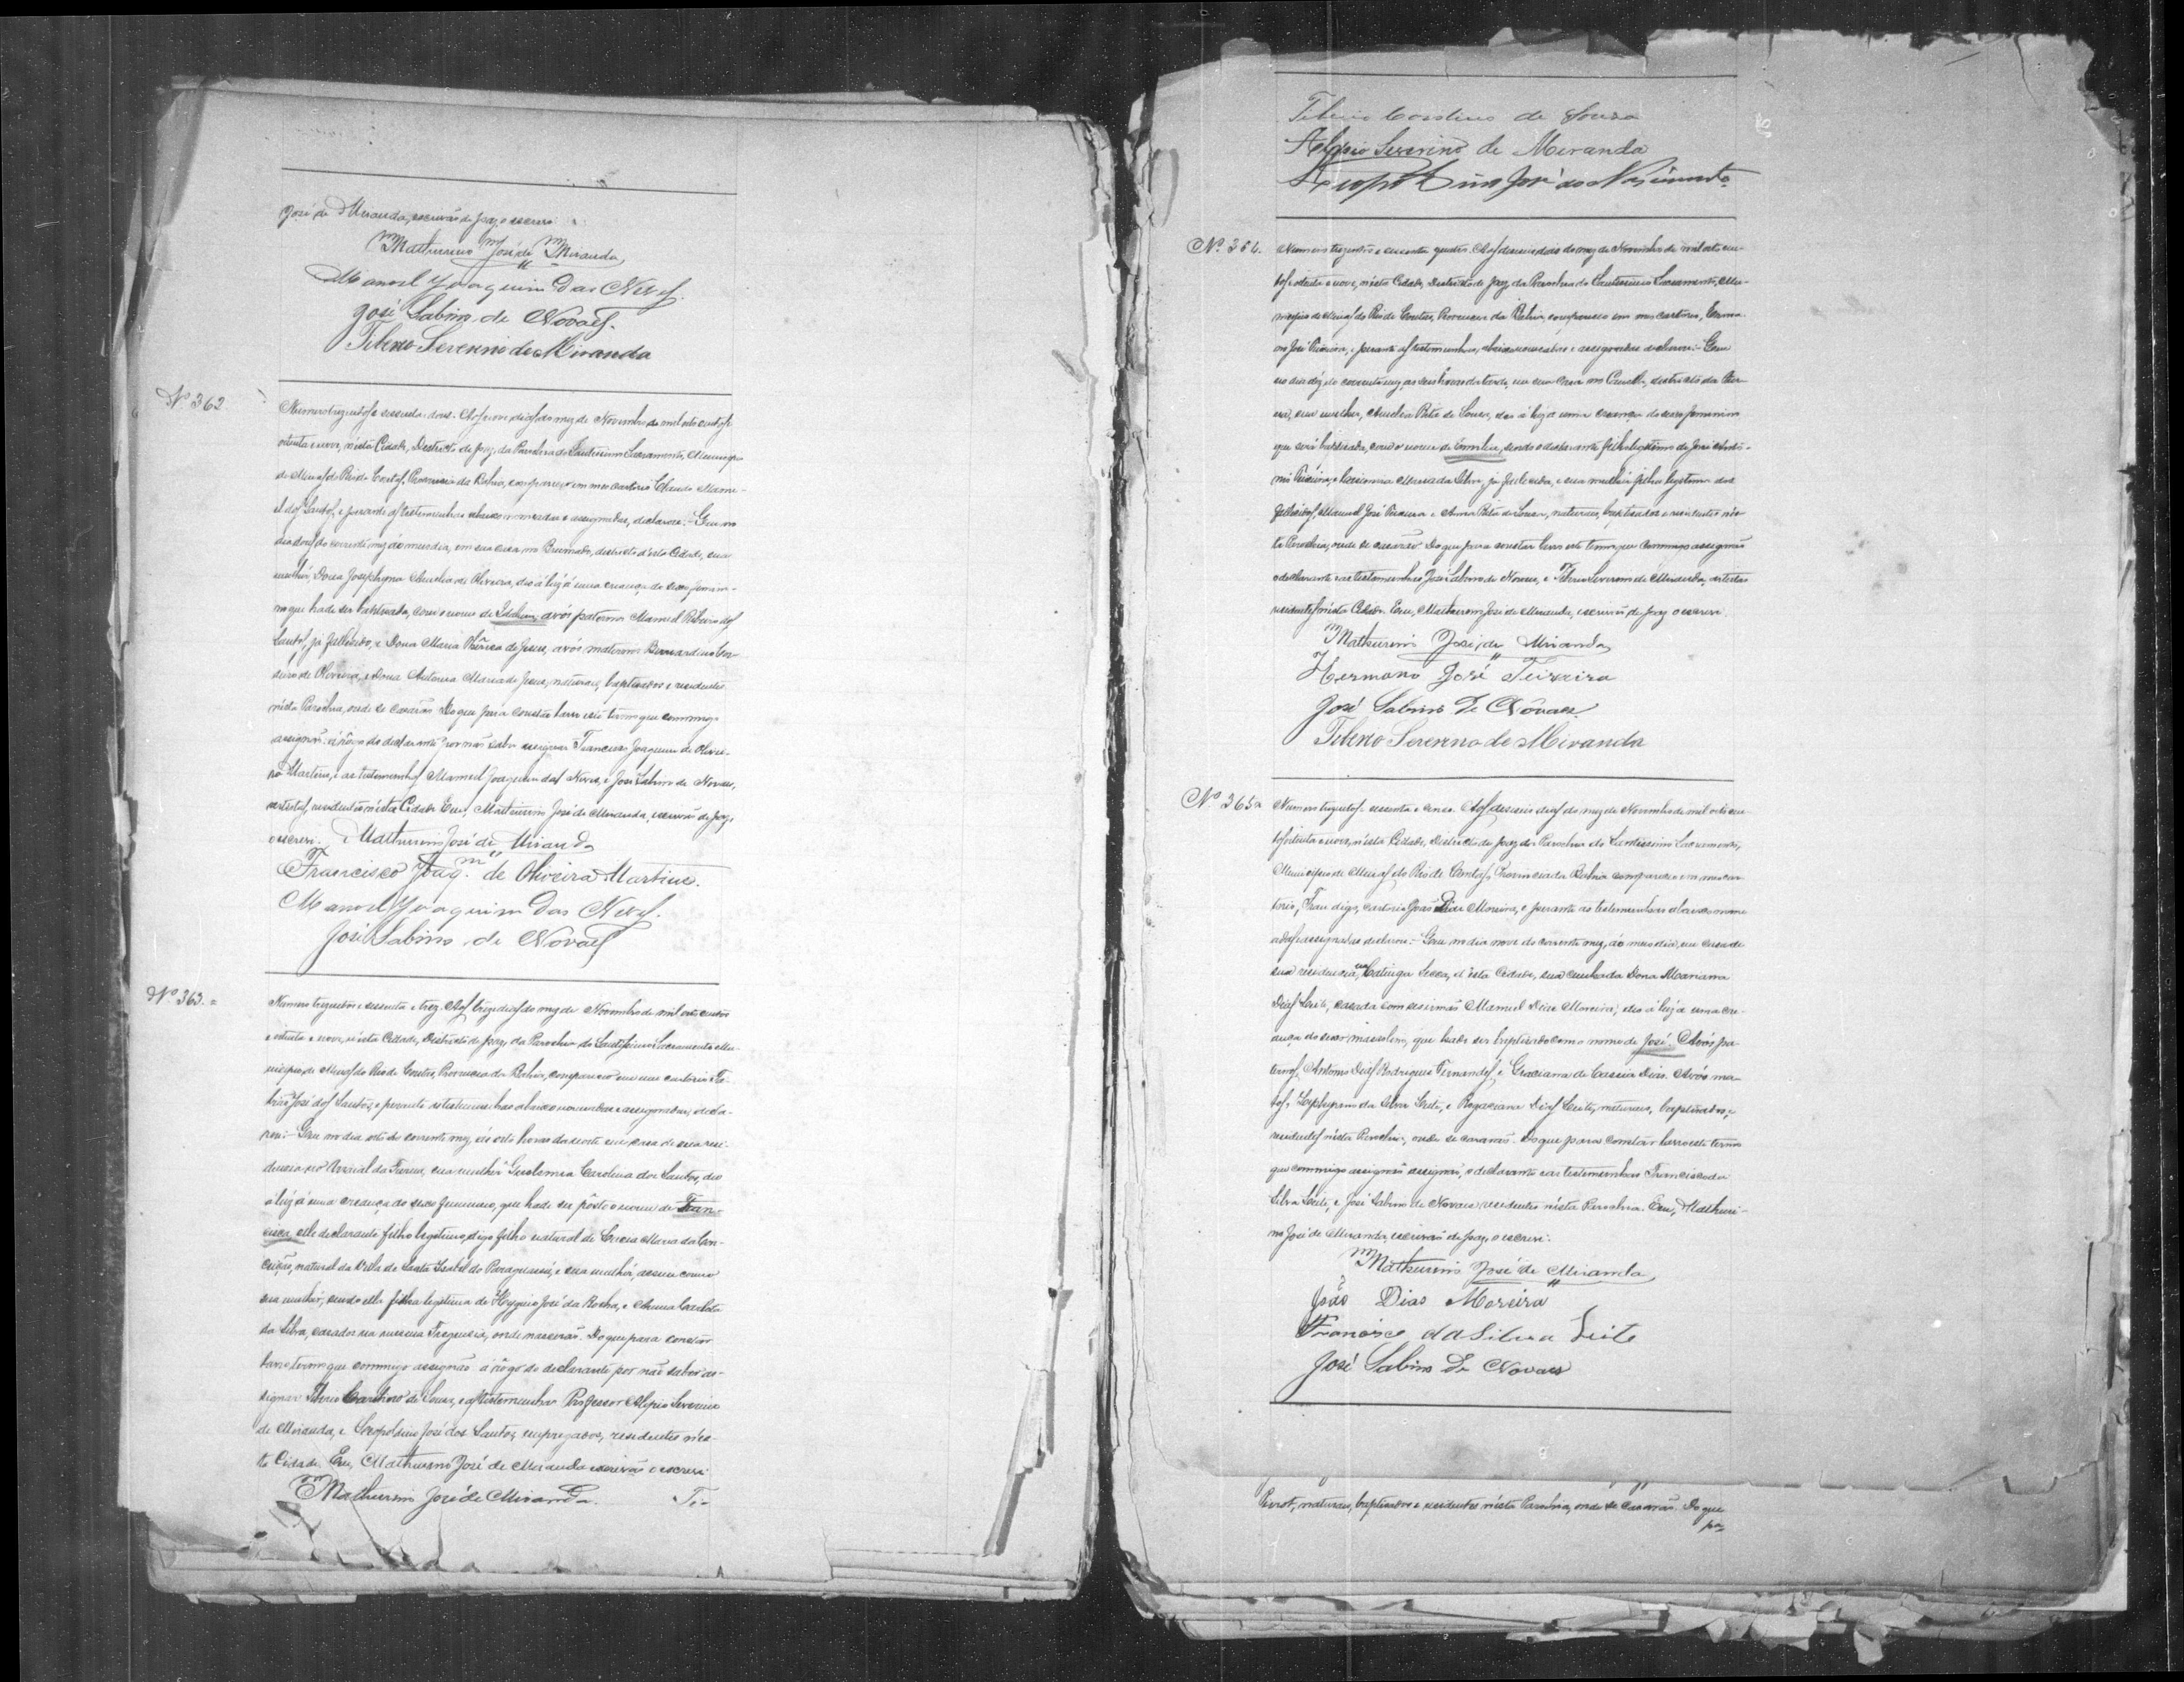 José de Miranda, escrivão de paz, o escrevi.
Mathurino José de Miranda
Manoel Joaquim das Neves.
José Sabino de Novaes.
Tiberio Severino de Miranda
Nº 362
Numero trezentos e sessenta e dous. Aos nove dias do mez de Novembro de mil oito centos e
oitenta e nove, nésta Cidade, Destricto de paz, da Parochia do Santissimo Sacramento, Municipio
de Minas do Rio de Contas, Provincia da Bahia, compareceo em meo cartorio Claudio Mano-
el dos Santos, e perante as testemunhas abaixo nomeadas e assignadas, declarou: Que no
dia dous do corrente mez ao meio dia, em sua casa no Brumado, districto d'esta Cidade, sua
mulhér, Dona Josephyna Amelia de Oliveira, deo á luz á uma criança do sexo femini-
no que hade ser batisada, com o nome de avós paternos Manoel Ribeiro dos
Santos, já fallecido, e Dona Maria de Jesus, avós maternos Bernardino Cor-
deiro de Oliveira, e Dona Antonia Maria de Jesus, naturaes, baptisados e residentes
nésta Parochia, onde se casarão. Do que para constar lavro este termo que commigo
assignão: á rôgo do declarante por não saber assignar Francisco Joaquim de Olivei-
ra Martins, e as testemunhas Manoel Joaquim das Neves, e José Sabino de Novaes,
artistas, residentes nésta Cidade. Eu, Mathurino José de Miranda, escrivão de paz,
o escrevi. Mathurino José de Miranda
Francisco Joaq.m de Oliveira Martins.
Manoel Joaquim das Neves.
José Sabino de Novaes
Nº 363.=
Numero trezentos e sessenta e trez. Aos treze dias do mez de Novembro de mil oito centos
e oitenta e nove, n'esta Cidade, Districto de paz, da Parochia do Santissimo Sacramento Mu-
nicipio, de Minas do Rio de Contas, Provincia da Bahia, compareceo em meo cartorio Fa-
bião José dos Santos, e perante as testemunhas abaixo nomeadas e assignadas, decla-
rou:- Que no dia oito do corrente mez, ás oito horas da noite em casa de sua resi-
dencia no Arraial da Furna, sua mulhér Carolina dos Santos, deo
á luz á uma creança do sexo feminino, que hade ser pôsto o nome de Fran-
cisca, elle declarante filho legitimo, digo filho natural de Maria da Con-
ceição, natural da Villa de Santa Izabel do Paraguassú, e sua mulhér, assim como
sua mulher, sendo ella filha legitima de Hygino José da Rocha, e Anna Carlota
da Silva, casados na mesma Freguesia, onde nascerão. Do que para constar
lavro termo que commigo assignão á rôgo do declarante por não saber as-
signar Tiberio Cardoso de Souza, e as testemunhas Professor Aloysio Severino
de Miranda, e Leopoldino José dos Santos, empregados, residentes n'es-
ta Cidade. Eu, Mathurino José de Miranda escrivão o escrevi.
Mathurino José de Miranda. Ti-
de Souza
Severino de Miranda
José do Nascimento
Nº 364.
Numero trezentos e sessenta e quatro. Aos do mez de Novembro de mil oito cen-
tos e oitenta e nove, n'esta Cidade, Destricto de paz, da Parochia do Santissimo Sacramento, Mu-
nicipio de Minas do Rio de Contas, Provincia da Bahia, compareceo em meo cartorio, Herma-
no José Teixeira, e perante as testemunhas, abaixo nomeadas e assignadas declarou:- Que
no dia déz do corrente mez, as seis horas da tarde, em sua casa no districto da
sua mulher, Amelia Rita de Souza, deo á luz a uma creança do sexo feminino
que será baptisada, com o nome de Emilia, sendo o declarante filho legitimo de José Anto-
nio Teixeira, e Maria da Silva, já fallecida, e sua mulhér filha legitima dos
fallecidos, Manoel José Teixeira e Anna Rita de Souza, naturaes, baptisados e residentes nés-
ta Parochia, onde se casarão. Do que para constar lavro este termo que commigo assignão
o declarante e as testemunhas José Sabino de Novaes, e Tiberio Severino de Miranda, artistas
residentes nésta Cidade. Eu, Mathurino José de Miranda, escrivão de paz o escrevi.
Mathurino José de Miranda
Hermano José Teixeira
José Sabino de Novaes.
Tiberio Severino de Miranda
Nº 365=
Numero trezentos e sessenta e cinco. Aos deseseis dias do mez de Novembro de mil oito cen-
tos oitenta e nove, n'esta Cidade, Districto de paz da Parochia do Santissimo Sacramento,
Municipio de Minas do Rio de Contas, Provincia da Bahia compareceo em meo car-
torio, digo, cartorio João Dias Moreira, e perante as testemunhas abaixo nome-
adas e assignadas declarou:- Que no dia nove do corrente mez, ao meio dia, em casa de
sua residencia, na Catinga Secca, d'ésta Cidade, sua cunhada Dona Marianna
Dias Leite, casada com seo irmão Manoel Dias Moreira, deo á luz a uma cre-
ança do sexo masculino, que hade ser baptisado com o nome de José. Avós pa-
ternos, Antonio Dias Rodrigues Fernandes, e Graciana de Cassia Dias. Avós ma-
tos, Zephyrino da Silva Leite, e Rogaciana Dias Leite, naturaes, baptisados, e
residentes nésta Parochia, onde se casarão. Do que para constar lavro este termo
que commigo assignão assignão, o declarante e as testemunhas Francisco da
Silva Leite, e José Sabino de Novaes residentes nésta Parochia. Eu, Mathuri-
no José de Miranda, escrivão de paz, o escrevi.
Mathurino José de Miranda,
João Dias Moreira
Francisco da Silva Leite
José Sabino de Novaes
naturaes, baptisados e residentes nésta Parochia, onde se casarão. Do que
pa-